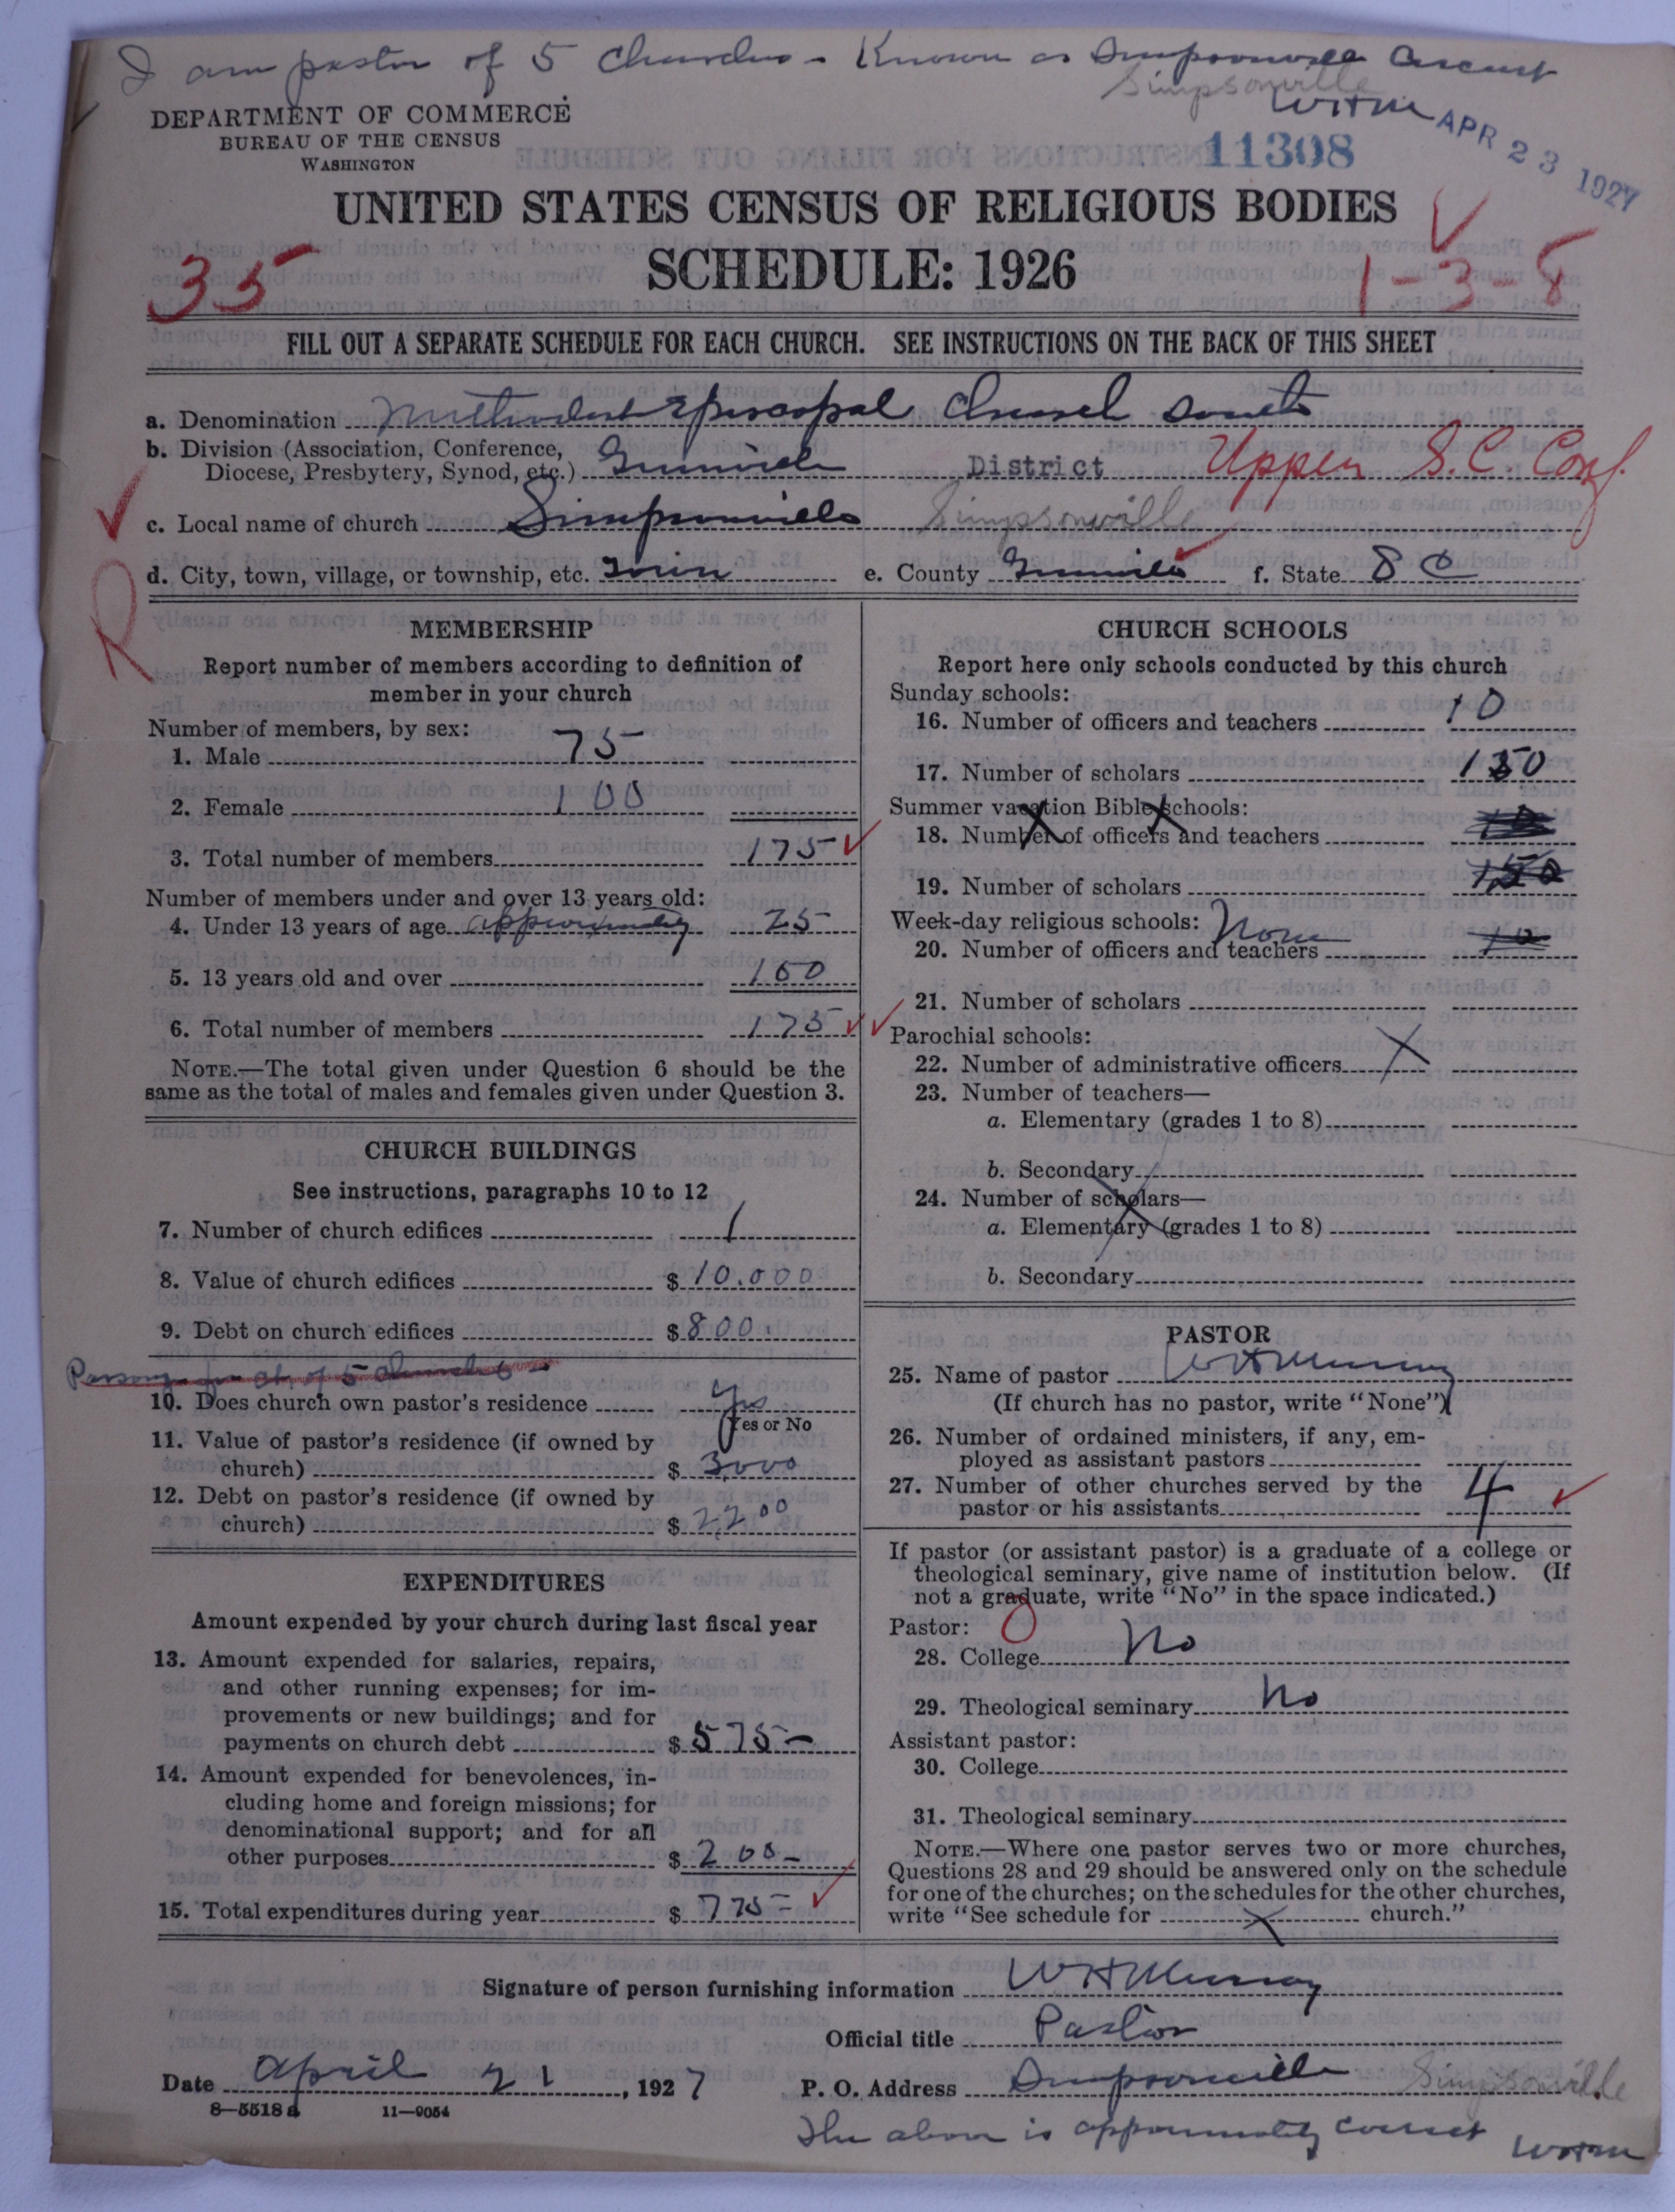 I am pastor of 5 Churches - Known as Simpsonville Circuit
Simpsonville
WHM
APR 23 1927
DEPARTMENT OF COMMERCE
BUREAU OF THE CENSUS
WASHINGTON
11308
UNITED STATES CENSUS OF RELIGIOUS BODIES
SCHEDULE: 1926
35
1-3-8
FILL OUT A SEPARATE SCHEDULE FOR EACH CHURCH. SEE INSTRUCTIONS ON THE BACK OF THIS SHEET
a. Denomination Methodist Episcopal Church South
b. Division (Association, Conference, Diocese, Presbytery, Synod, etc.) Greenville District Upper S.C. Conf
c. Local name of church Simpsonville Simpsonville
d. City, town, village, or township, etc. Town e. County Greenville f. State S C
R
MEMBERSHIP
Report number of members according to definition of
member in your church
Number of members, by sex:
1. Male 75
2. Female 100
3. Total number of members 175
Number of members under and over 13 years old:
4. Under 13 years of age approximately 25
5. 13 years old and over 150
6. Total number of members 175
NOTE.—The total given under Question 6 should be the
same as the total of males and females given under Question 3.
CHURCH BUILDINGS
See instructions, paragraphs 10 to 12
7. Number of church edifices 1
8. Value of church edifices $ 10.000
9. Debt on church edifices $ 800.
of 5 churches
10. Does church own pastor's residence Yes
(Yes or No
11. Value of pastor's residence (if owned by
church) $ 3000
12. Debt on pastor's residence (if owned by
church) $ 2200
EXPENDITURES
Amount expended by your church during last fiscal year
13. Amount expended for salaries, repairs,
and other running expenses; for im-
provements or new buildings; and for
payments on church debt $ 575-
14. Amount expended for benevolences, in-
cluding home and foreign missions; for
denominational support; and for all
other purposes $ 200-
15. Total expenditures during year $ 775-
CHURCH SCHOOLS
Report here only schools conducted by this church
Sunday schools:
16. Number of officers and teachers 10
17. Number of scholars 150
Summer vacation Bible schools:
18. Number of officers and teachers
19. Number of scholars 150
Week-day religious schools: None
20. Number of officers and teachers 10
21. Number of scholars
Parochial schools:
22. Number of administrative officers X
23. Number of teachers—
a. Elementary (grades 1 to 8)
b. Secondary
24. Number of scholars—
a. Elementary (grades 1 to 8)
b. Secondary
PASTOR
25. Name of pastor WH Murray
(If church has no pastor, write "None")
26. Number of ordained ministers, if any, em-
ployed as assistant pastors
27. Number of other churches served by the
pastor or his assistants 4
If pastor (or assistant pastor) is a graduate of a college or
theological seminary, give name of institution below. (If
not a graduate, write "No" in the space indicated.)
Pastor: 0
28. College No
29. Theological seminary No
Assistant pastor:
30. College
31. Theological seminary
NOTE.—Where one pastor serves two or more churches,
Questions 28 and 29 should be answered only on the schedule
for one of the churches; on the schedules for the other churches,
write "See schedule for X church."
Signature of person furnishing information WH Murray
Official title Pastor
Date April 21, 1927 P. O. Address Simpsonville Simpsonville
8-5518a 11-9054
The above is approximately correct WHM